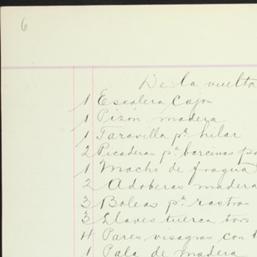 6
De la vuelta
1 Escalera Cajon
1 Pizón madera
1 Taravilla pª hilar
2 Picaderas pª barcinas
1 Macho de fragua
2 Adoberas madera
3 Boleas pª rastras
3 Llaves tuerca
4 Pares visagras con
1 Pala de madera